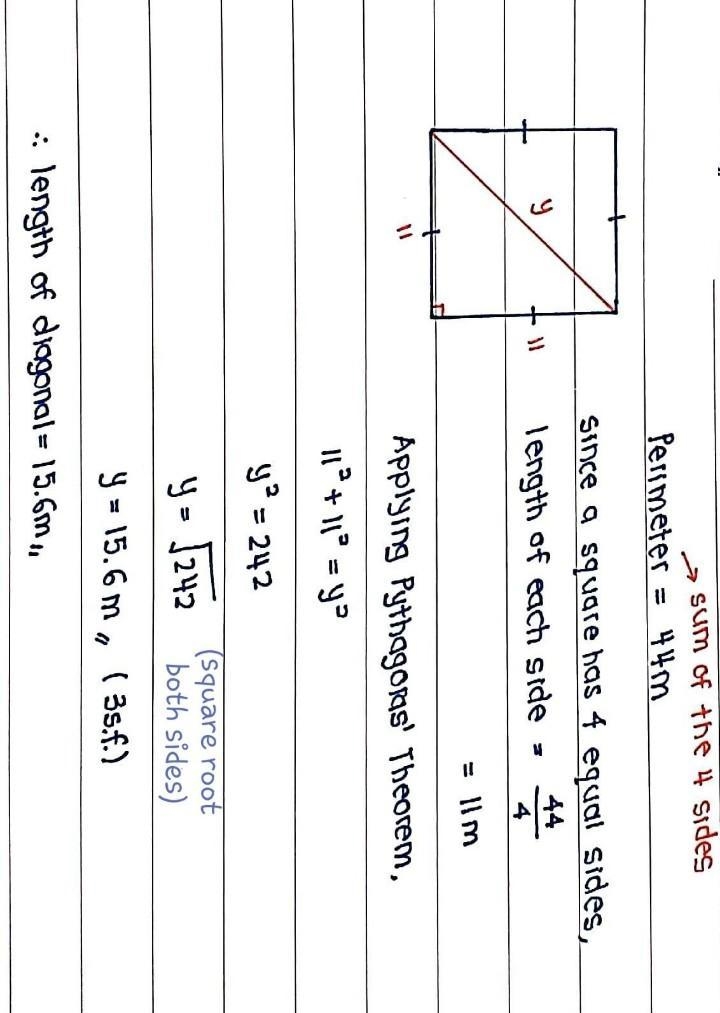 → sum of the 4 sides
Perimeter = 44m
since a square has 4 equal sides,
length of each side = 44/4
= 11m
y
11
11
Applying Pythagoras' Theorem,
11² + 11² = y²
y² = 242
y = √242 (square root both sides)
y = 15.6 m,, (3s.f.)
∴ length of diagonal = 15.6m,,